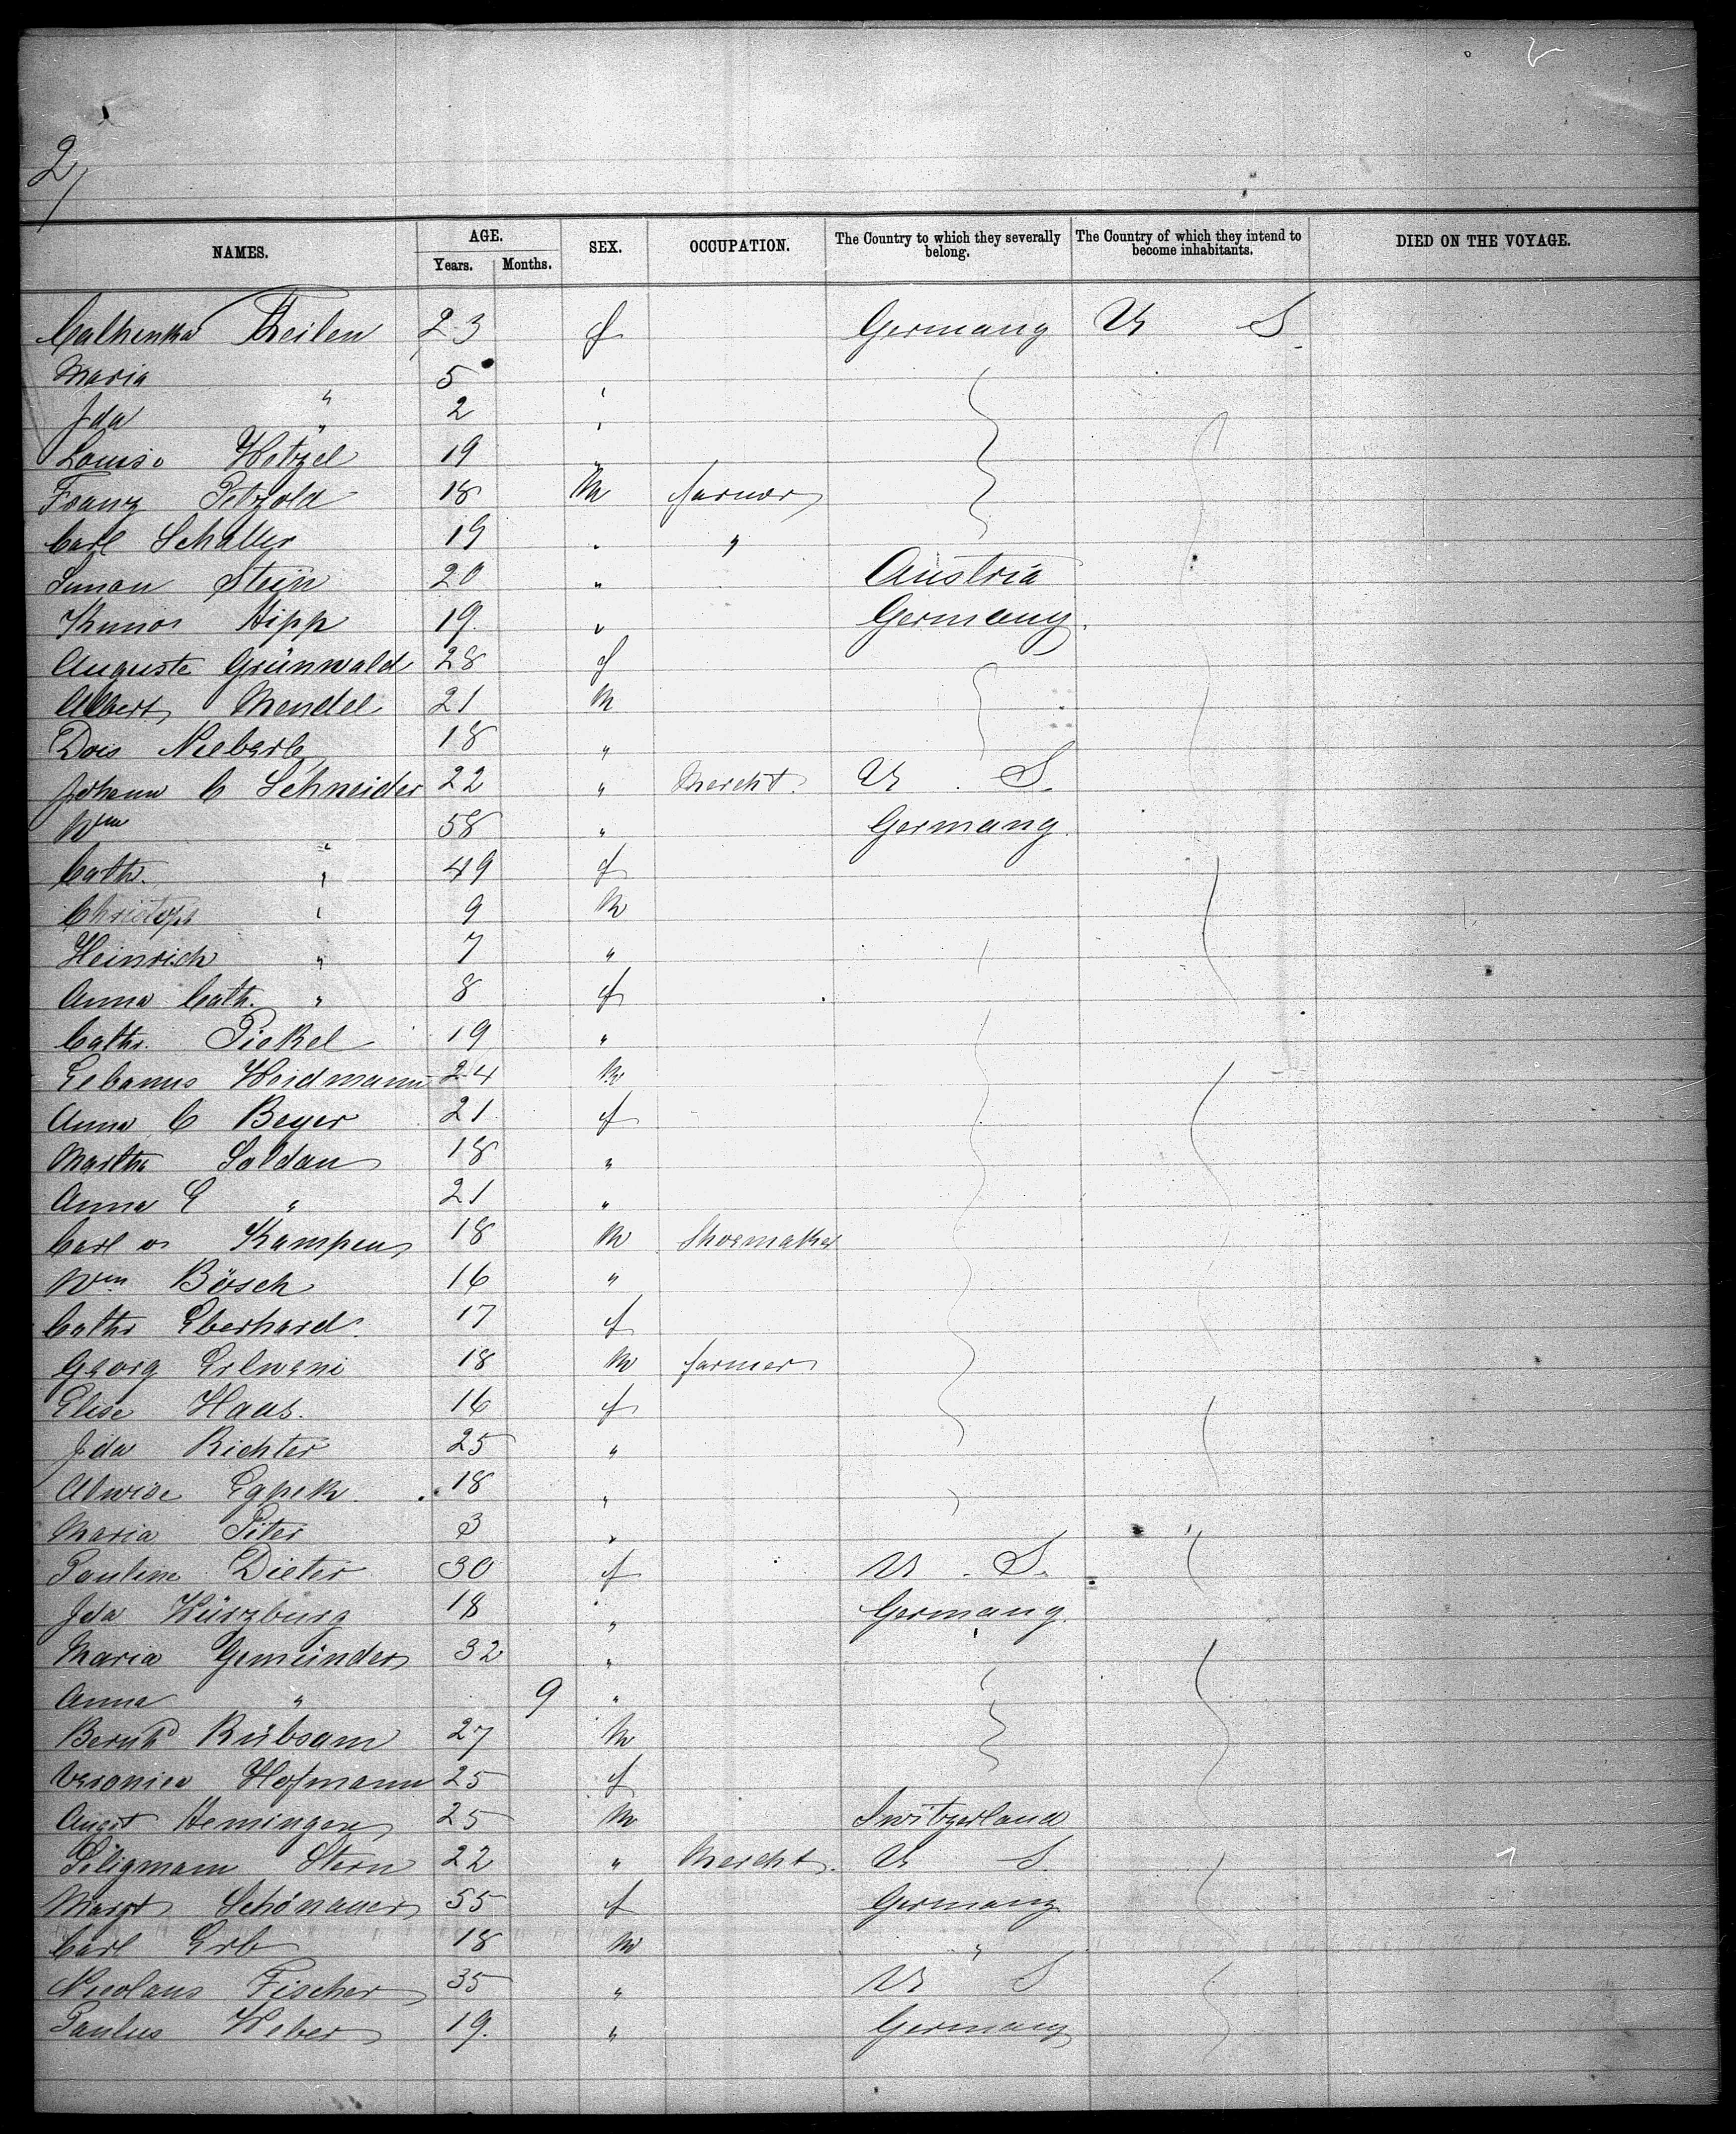 2/
NAMES. AGE. Years. Months. SEX. OCCUPATION. The Country to which they severally belong. The Country of which they intend to become inhabitants. DIED ON THE VOYAGE.
Theilen 23 f Germany U S
Maria " 5 "
Ida " 2 "
Louise Wetzel 19 "
Franz Petzold 18 M farmer
Carl Schaller 19 " "
Simon Stein 20 " Austria
Hipp 19 " Germany.
Auguste Grünwald 28 f
Albert Mendel 21 M
18 "
Johann C Schneider 22 " Mercht. U S.
Wm " 58 " Germany.
Cath. " 49 f
Christoph " 9 M
Heinrich " 7 "
Anna Cath. " 8 f
Cathr. Pickel 19 "
Weidmann 24 M
Anna C Beyer 21 f
Martha Soldan 18 "
Anna E " 21 "
Carl v Kampen 18 M Shoemaker
Wm Bösch 16 "
Cathr Eberhard. 17 f
Georg 18 M farmer
Elise Haas. 16 f
Ida Richter 25 "
18 "
Maria Peter 3 "
Pauline Dieter 30 f U. S.
Ida Würzburg 18 " Germany.
Maria Gemünder 32 "
Anna " 9 "
Bernhd Rübsam 27 M
Veronica Hofmann 25 f
Augst Heminger 25 M Switzerland
Seligmann Stern 22 " Mercht. U S.
Margt Schönauer 55 f Germany
Carl Erb 18 M "
Nicolaus Fischer 35 " U S
Paulus Weber 19. " Germany